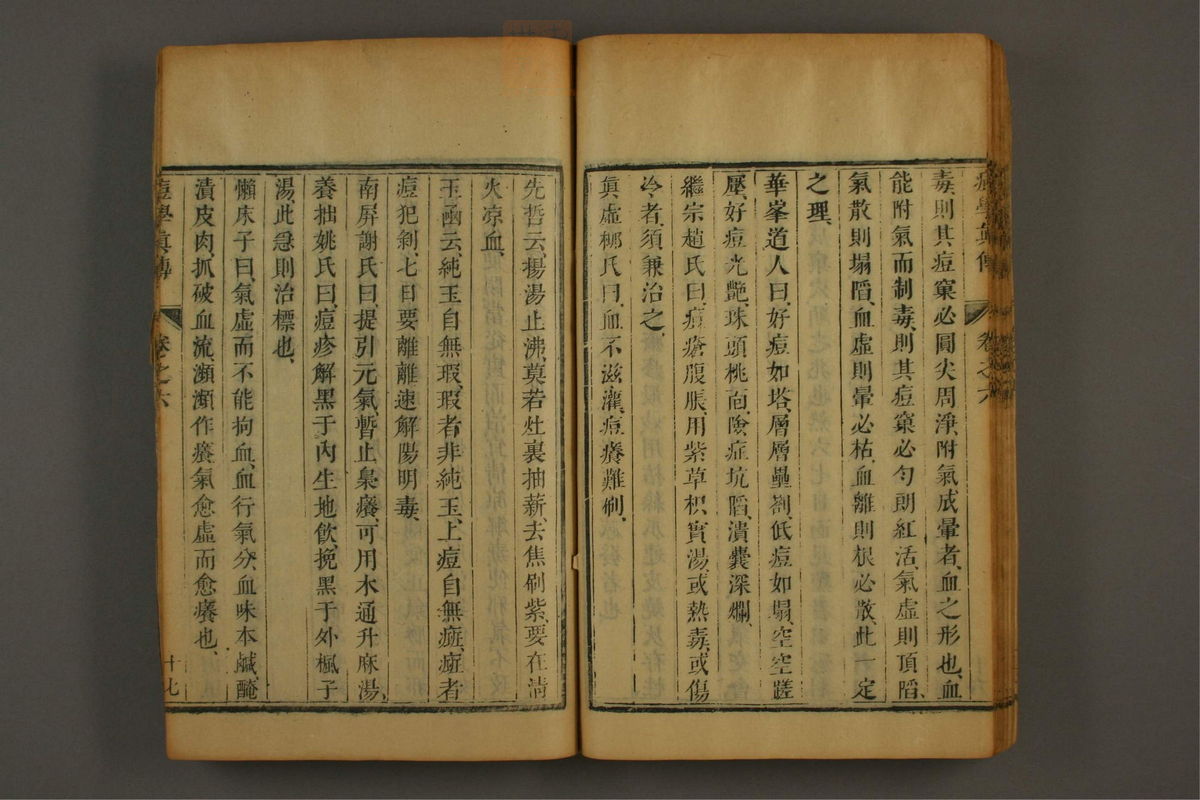 痘學眞傳 卷之六
毒則其痘窠必圓尖周淨附氣成暈者血之形也血
能附氣而制毒則其痘窠必勻朗紅活氣虛則頂䧟
氣散則塌䧟血虛則暈必枯血離則根必散此一定
之理
華峯道人曰好痘如塔層層壘劄低痘如塌空空蹉
壓好痘光艶珠頭桃苞險症坑䧟潰囊深爛
繼宗趙氏曰痘瘡腹脹用紫草枳實湯或熱毒或傷
冷者須兼治之
眞虛柳氏曰血不滋灌痘癢難刷
先哲云揚湯止沸莫若灶裏抽薪去焦刷紫要在淸
火凉血
玉函云純玉自無瑕瑕者非純玉上痘自無疵疵者
痘犯剝七日要離離速解陽明毒
南屏謝氏曰提引元氣暫止梟癢可用水通升麻湯
養拙姚氏曰痘疹解黑于內生地飲挽黑于外楓子
湯此急則治標也
懶床子曰氣虛而不能拘血血行氣分血味本鹹醃
漬皮肉抓破血流瀕瀕作癢氣愈虛而愈癢也
痘學眞傳 卷之六 十七